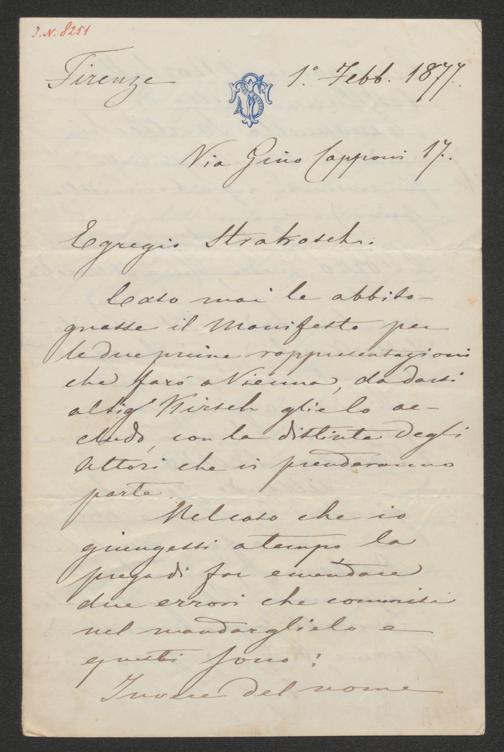 I. N. 8251
Firenze 1° Febb. 1877.
Via Gino Capponi 17.
Egregio Strakosch.
Caso mai le abbiso-
gnasse il Manifesto per
le due prime rappresentazioni
che farò a Vienna, da darsi
al Sig Hirsch glielo ac-
cludo, con la distinta degli
Attori che vi prenderanno
parte.
Nel caso che io
giungessi a tempo, la
prego di far emendare
due errori che commisi
nel mandarglielo e
questi sono:
Invece del nome